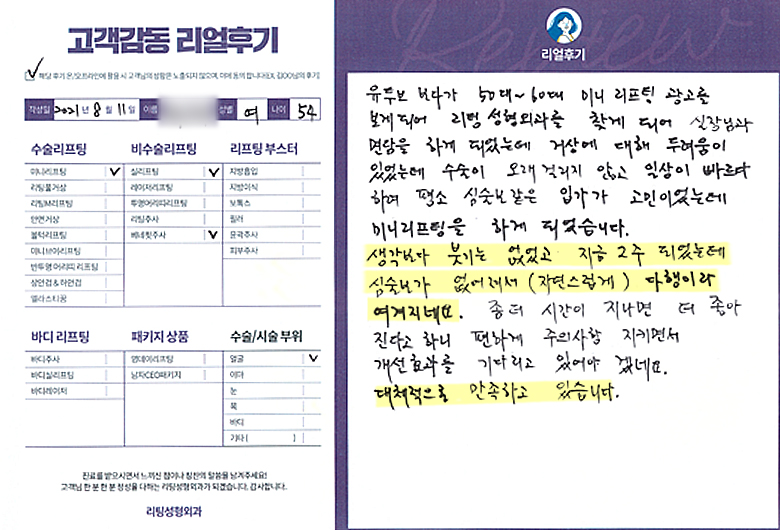 고객감동 리얼후기
해당 후기 온/오프라인에 활용 시 고객님의 성함은 노출되지 않으며, 이에 동의 합니다(EX. 김OO님의 후기)
작성일 2021년 8월 11일 이름 성별 여 나이 54
수술리프팅
미니리프팅 ✓
리팅풀거상
리팅M리프팅
안면거상
볼럽리프팅
미니브이리프팅
반투명 머리띠 리프팅
상안검 & 하안검
엘라스티꿈
비수술리프팅
실리프팅 ✓
레이저리프팅
투명머리띠리프팅
리팅주사
베네핏주사 ✓
리프팅 부스터
지방흡입
지방이식
보톡스
필러
윤곽주사
피부주사
바디 리프팅
바디주사
바디실리프팅
바디레이저
패키지 상품
원데이리프팅
남자CEO패키지
수술/시술 부위
얼굴 ✓
이마
눈
목
바디
기타 ( )
진료를 받으시면서 느끼신 점이나 칭찬의 말씀을 남겨주세요!
고객님 한 분 한 분 정성을 다하는 리팅성형외과가 되겠습니다. 감사합니다.
리팅성형외과
Review
리얼후기
유투브 보다가 50대~60대 미니 리프팅 광고를
보게되어 리팅 성형외과를 찾게 되어 실장님과
면담을 하게 되었는데 거상에 대해 두려움이
있었는데 수술이 오래 걸리지 않고 일상이 빠르다
하며 평소 심술보같은 입가가 고민이었는데
미니리프팅을 하게 되었습니다.
생각보다 붓기는 없었고 지금 2주 되었는데
심술보가 없어져서 (자연스럽게) 다행이라
여겨지네요. 좀더 시간이 지나면 더 좋아
진다고 하니 편하게 주의사항 지키면서
개선효과를 기다리고 있어야 겠네요.
대체적으로 만족하고 있습니다.